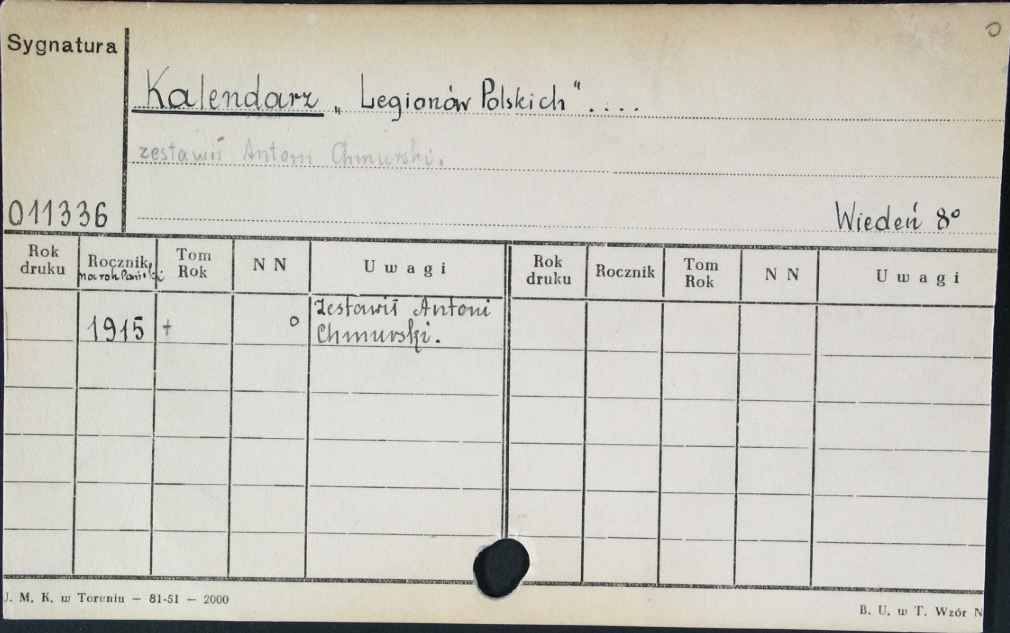 Sygnatura
Kalendarz „Legionów Polskich" ....
zestawił Antoni Chmurski.
011336
Wiedeń 8°
Rok druku Rocznik, na rok Pański Tom Rok N N Uwagi Rok druku Rocznik Tom Rok N N Uwagi
1915 + o Zestawił Antoni
Chmurski.
J. M. K. w Toruniu — 81-51 — 2000
B. U. w T. Wzór N